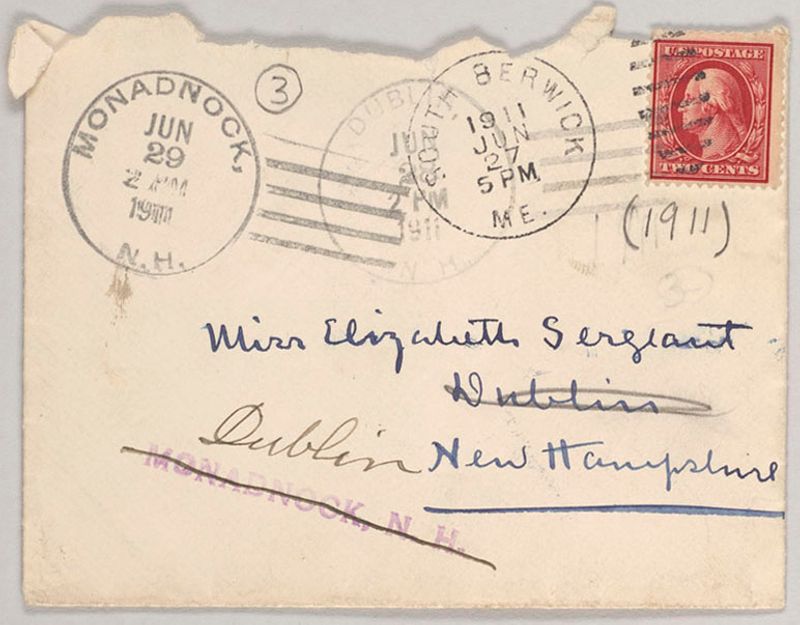 MONADNOCK,
JUN
29
2 PM
1911
N.H.
3
DUBLIN
2 PM
1911
N.H.
SOUTH BERWICK
1911
JUN
27
5 PM
ME.
U.S. POSTAGE
TWO CENTS
(1911)
Miss Elizabeth Sergeant
Dublin
Dublin New Hampshire
MONADNOCK, N. H.